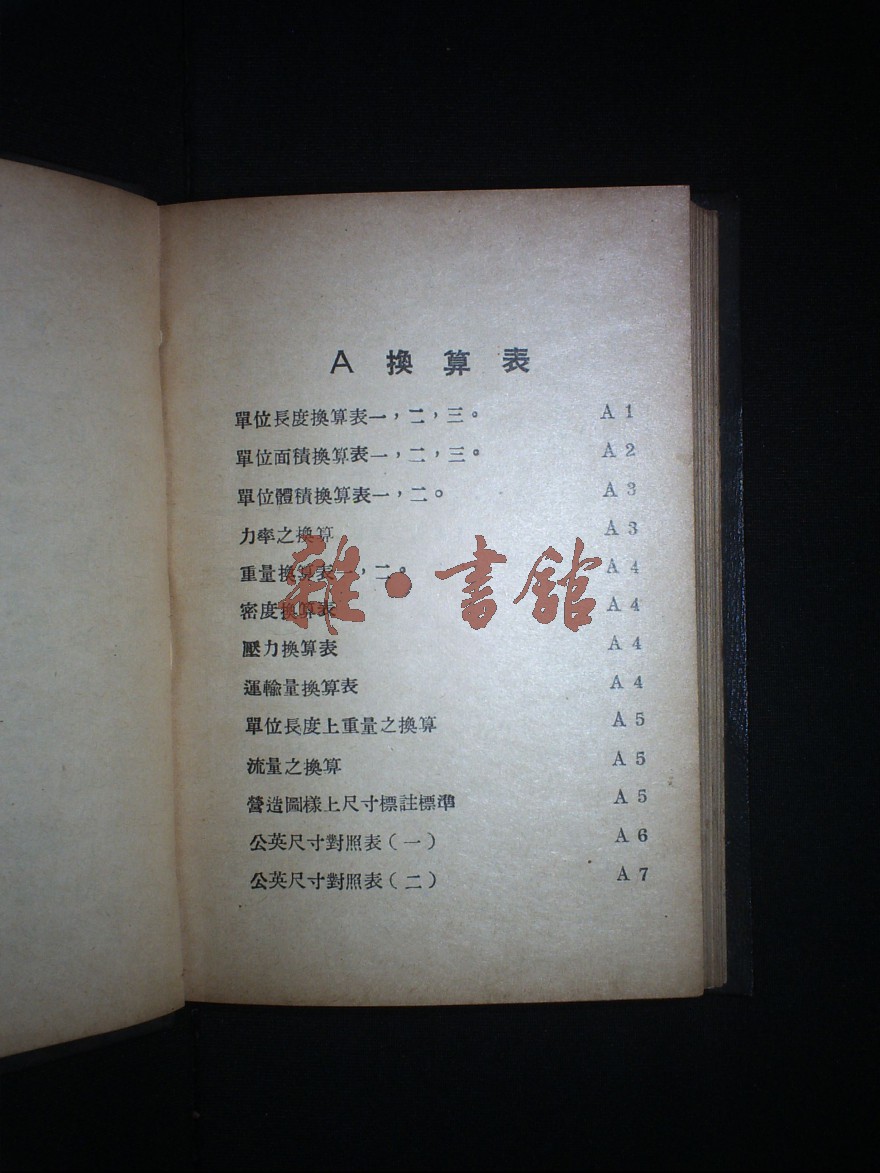 A 換算表
單位長度換算表一，二，三。 A 1
單位面積換算表一，二，三。 A 2
單位體積換算表一，二。 A 3
力率之換算 A 3
重量換算表一，二。 A 4
密度換算表 A 4
壓力換算表 A 4
運輸量換算表 A 4
單位長度上重量之換算 A 5
流量之換算 A 5
營造圖樣上尺寸標註標準 A 5
公英尺寸對照表(一) A 6
公英尺寸對照表(二) A 7
雜·書館